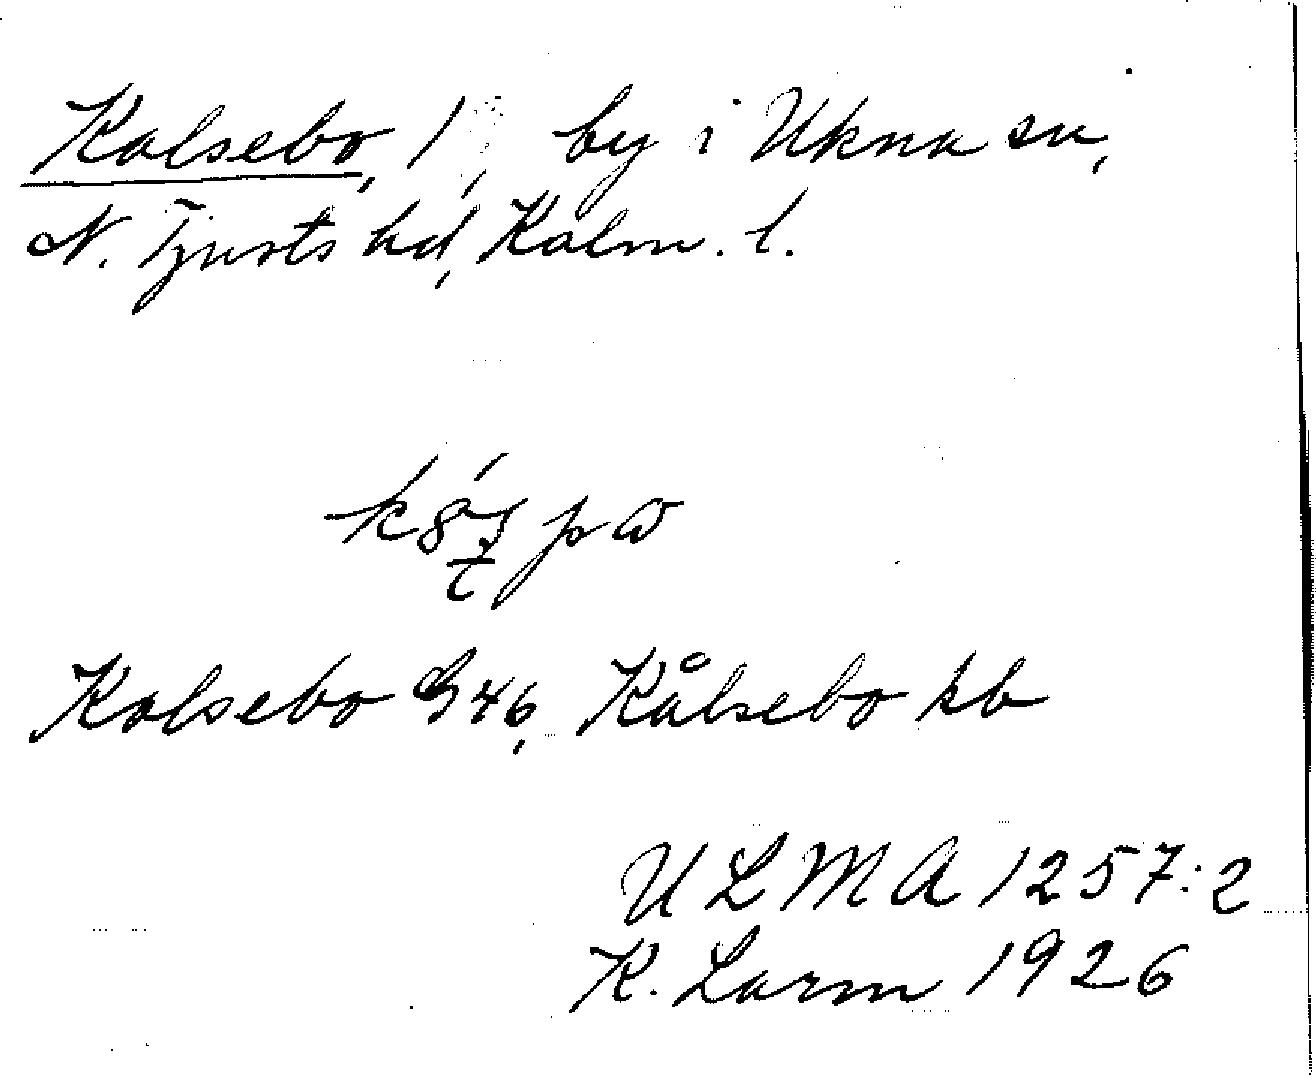 Kolsebo, 1, by i Ukna sn,
N. Tjusts hd, Kalm. l.
Kolsebo G 46, Kålsebo kb
ULMA 1257:2
K. Larm 1926